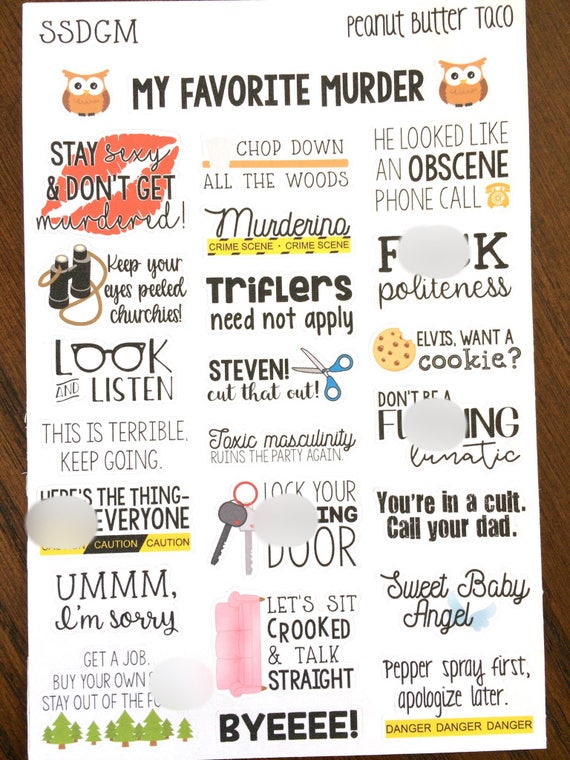 SSDGM
Peanut Butter Taco
MY FAVORITE MURDER
STAY sexy
& DON'T GET
murdered!
Keep your
eyes peeled
churchies!
LOOK
AND LISTEN
THIS IS TERRIBLE.
KEEP GOING.
HERE'S THE THING-
EVERYONE
CAUTION CAUTION CAUTION
UMMM,
I'm sorry
GET A JOB.
BUY YOUR OWN
STAY OUT OF THE
CHOP DOWN
ALL THE WOODS
Murderino
CRIME SCENE • CRIME SCENE
TRIFLERS
need not apply
STEVEN!
cut that out!
Toxic masculinity
RUINS THE PARTY AGAIN.
LOCK YOUR
DOOR
LET'S SIT
CROOKED
& TALK
STRAIGHT
BYEEEE!
HE LOOKED LIKE
AN OBSCENE
PHONE CALL
politeness
ELVIS, WANT A
cookie?
DON'T BE A
lunatic
You're in a cult.
Call your dad.
Sweet Baby
Angel
Pepper spray first,
apologize later.
DANGER DANGER DANGER